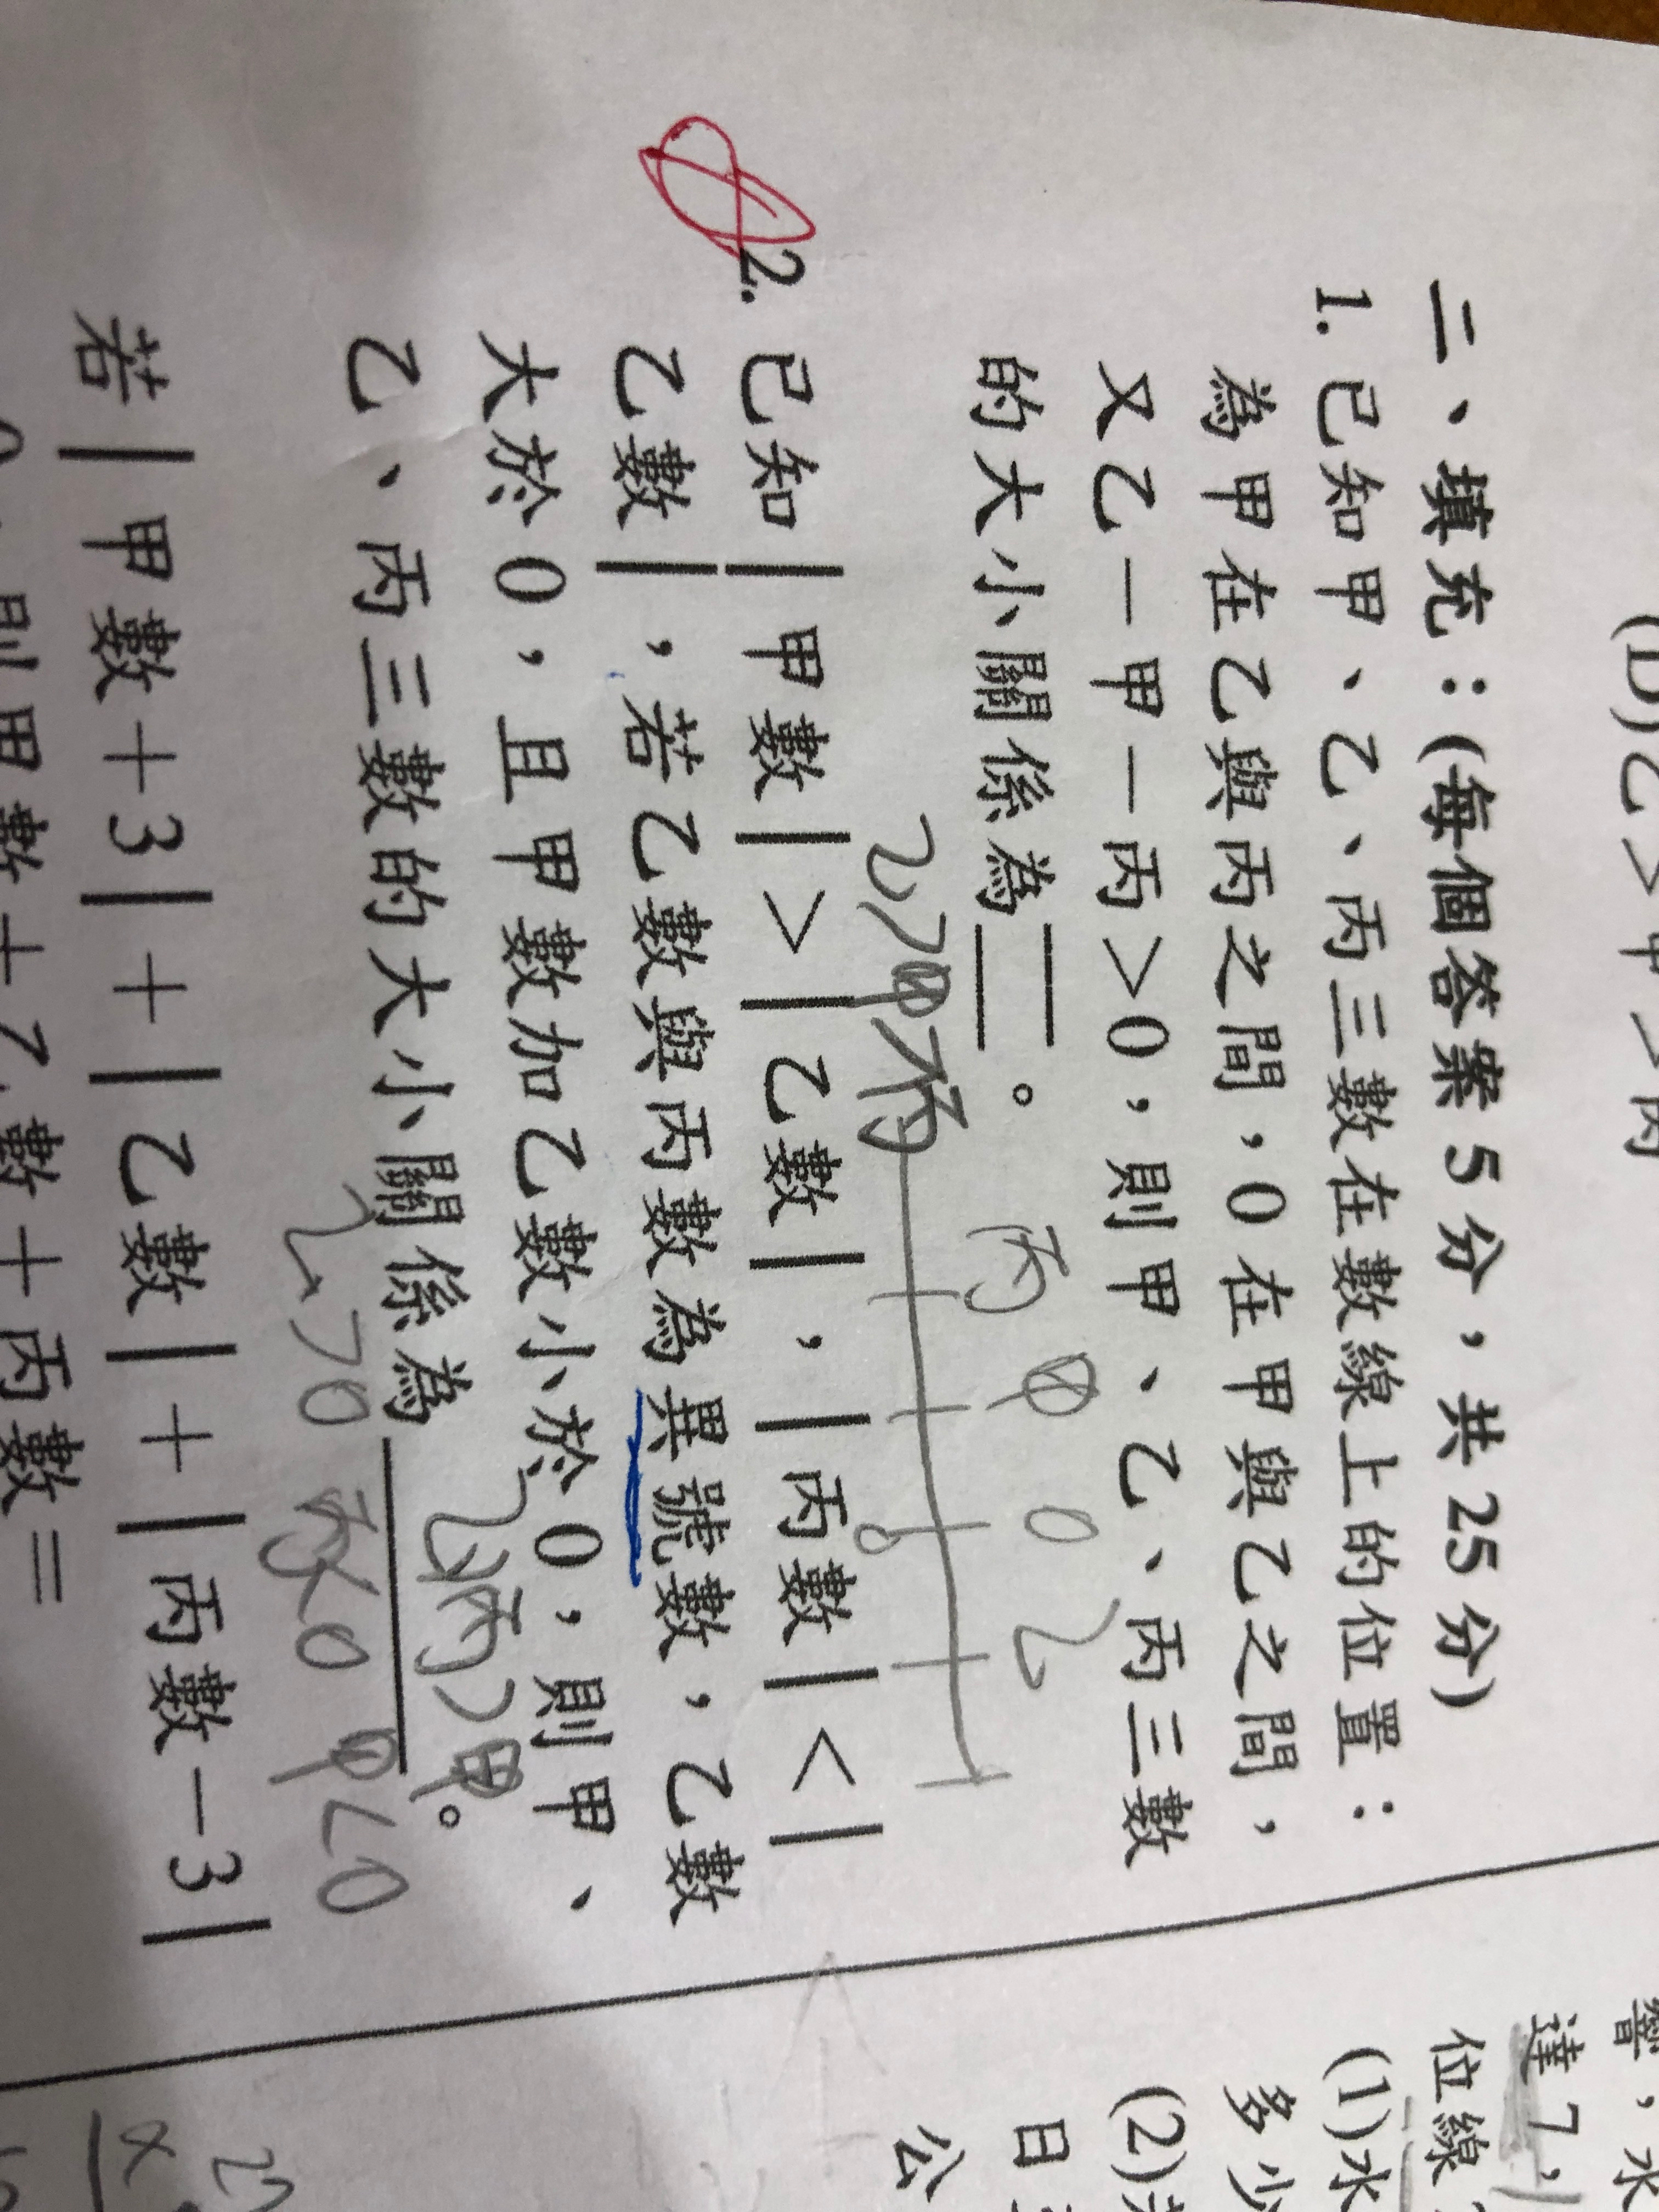 (D)乙>甲>丙
二、填充:(每個答案 5 分,共 25 分)
1.已知甲、乙、丙三數在數線上的位置:
為甲在乙與丙之間,0 在甲與乙之間,
又乙-甲-丙>0,則甲、乙、丙三數
的大小關係為 。
乙>甲>丙
丙 甲 0 乙
0
2.已知|甲數|>|乙數|,|丙數|<|
乙數|,若乙數與丙數為異號數,乙數
大於 0,且甲數加乙數小於 0,則甲、
乙、丙三數的大小關係為 。
乙>丙>甲
乙>0 丙<0 甲<0
若|甲數+3|+|乙數|+|丙數-3|
則甲數+乙數+丙數=
達 7,
位線
(1)水
多少
(2)
日
公